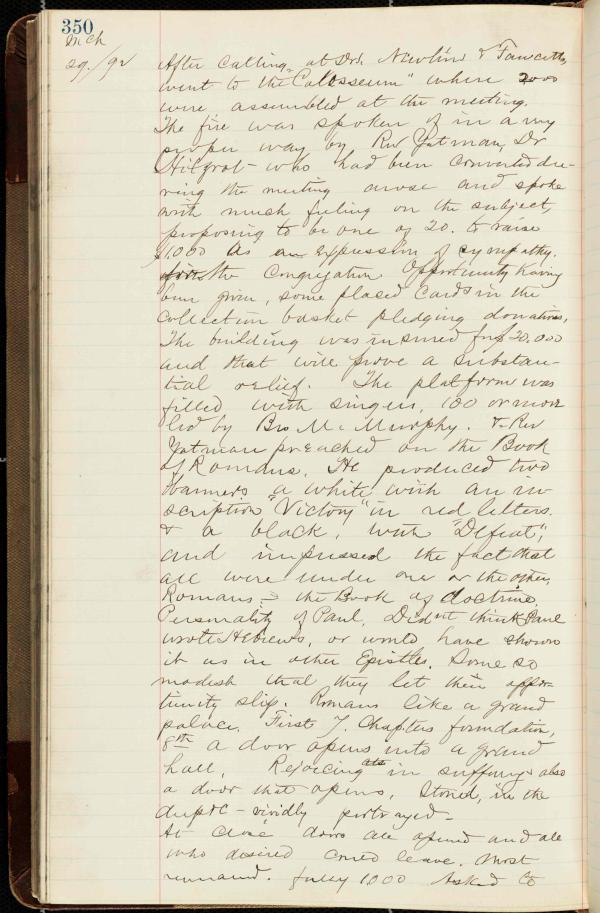 350
Mch
29./92
After calling at Drs. Newlin's & Fawcetts,
went to the "Colosseum" where 2000
were assembled at the meeting.
The fire was spoken of in a very
proper way by Rev Yatman, Dr
who had been converted du-
ring the meeting arose and spoke
with much feeling on the subject,
proposing to be one of 20. to raise
$1,000 as an expression of sympathy.
the Congregation Opportunity having
been given, some placed Cards in the
Collection basket pledging donations.
The building was insured for $20,000
and that will prove a substan-
tial relief. The platform was
filled with singers, 100 or more
led by Bro McMurphy. & Rev
Yatman preached on the Book
of Romans. He produced two
banners a white with an in
scription "Victory" in red letters.
& a black, with "Defeat",
and impressed the fact that
all were under one or the other.
Romans = the Book of doctrine.
Personality of Paul. Did not think Paul
wrote Hebrews, or would have shown
it as in other Epistles. Some so
modest that they let their oppor-
tunity slip. Romans like a grand
palace. First 7. Chapters foundation,
8th a door opens into a grand
hall. Rejoicing in suffering also
a door that opens. in the
dept - vividly portrayed -
At close doors all opened and all
who desired leave. Most
remained. fully 1000 Asked to